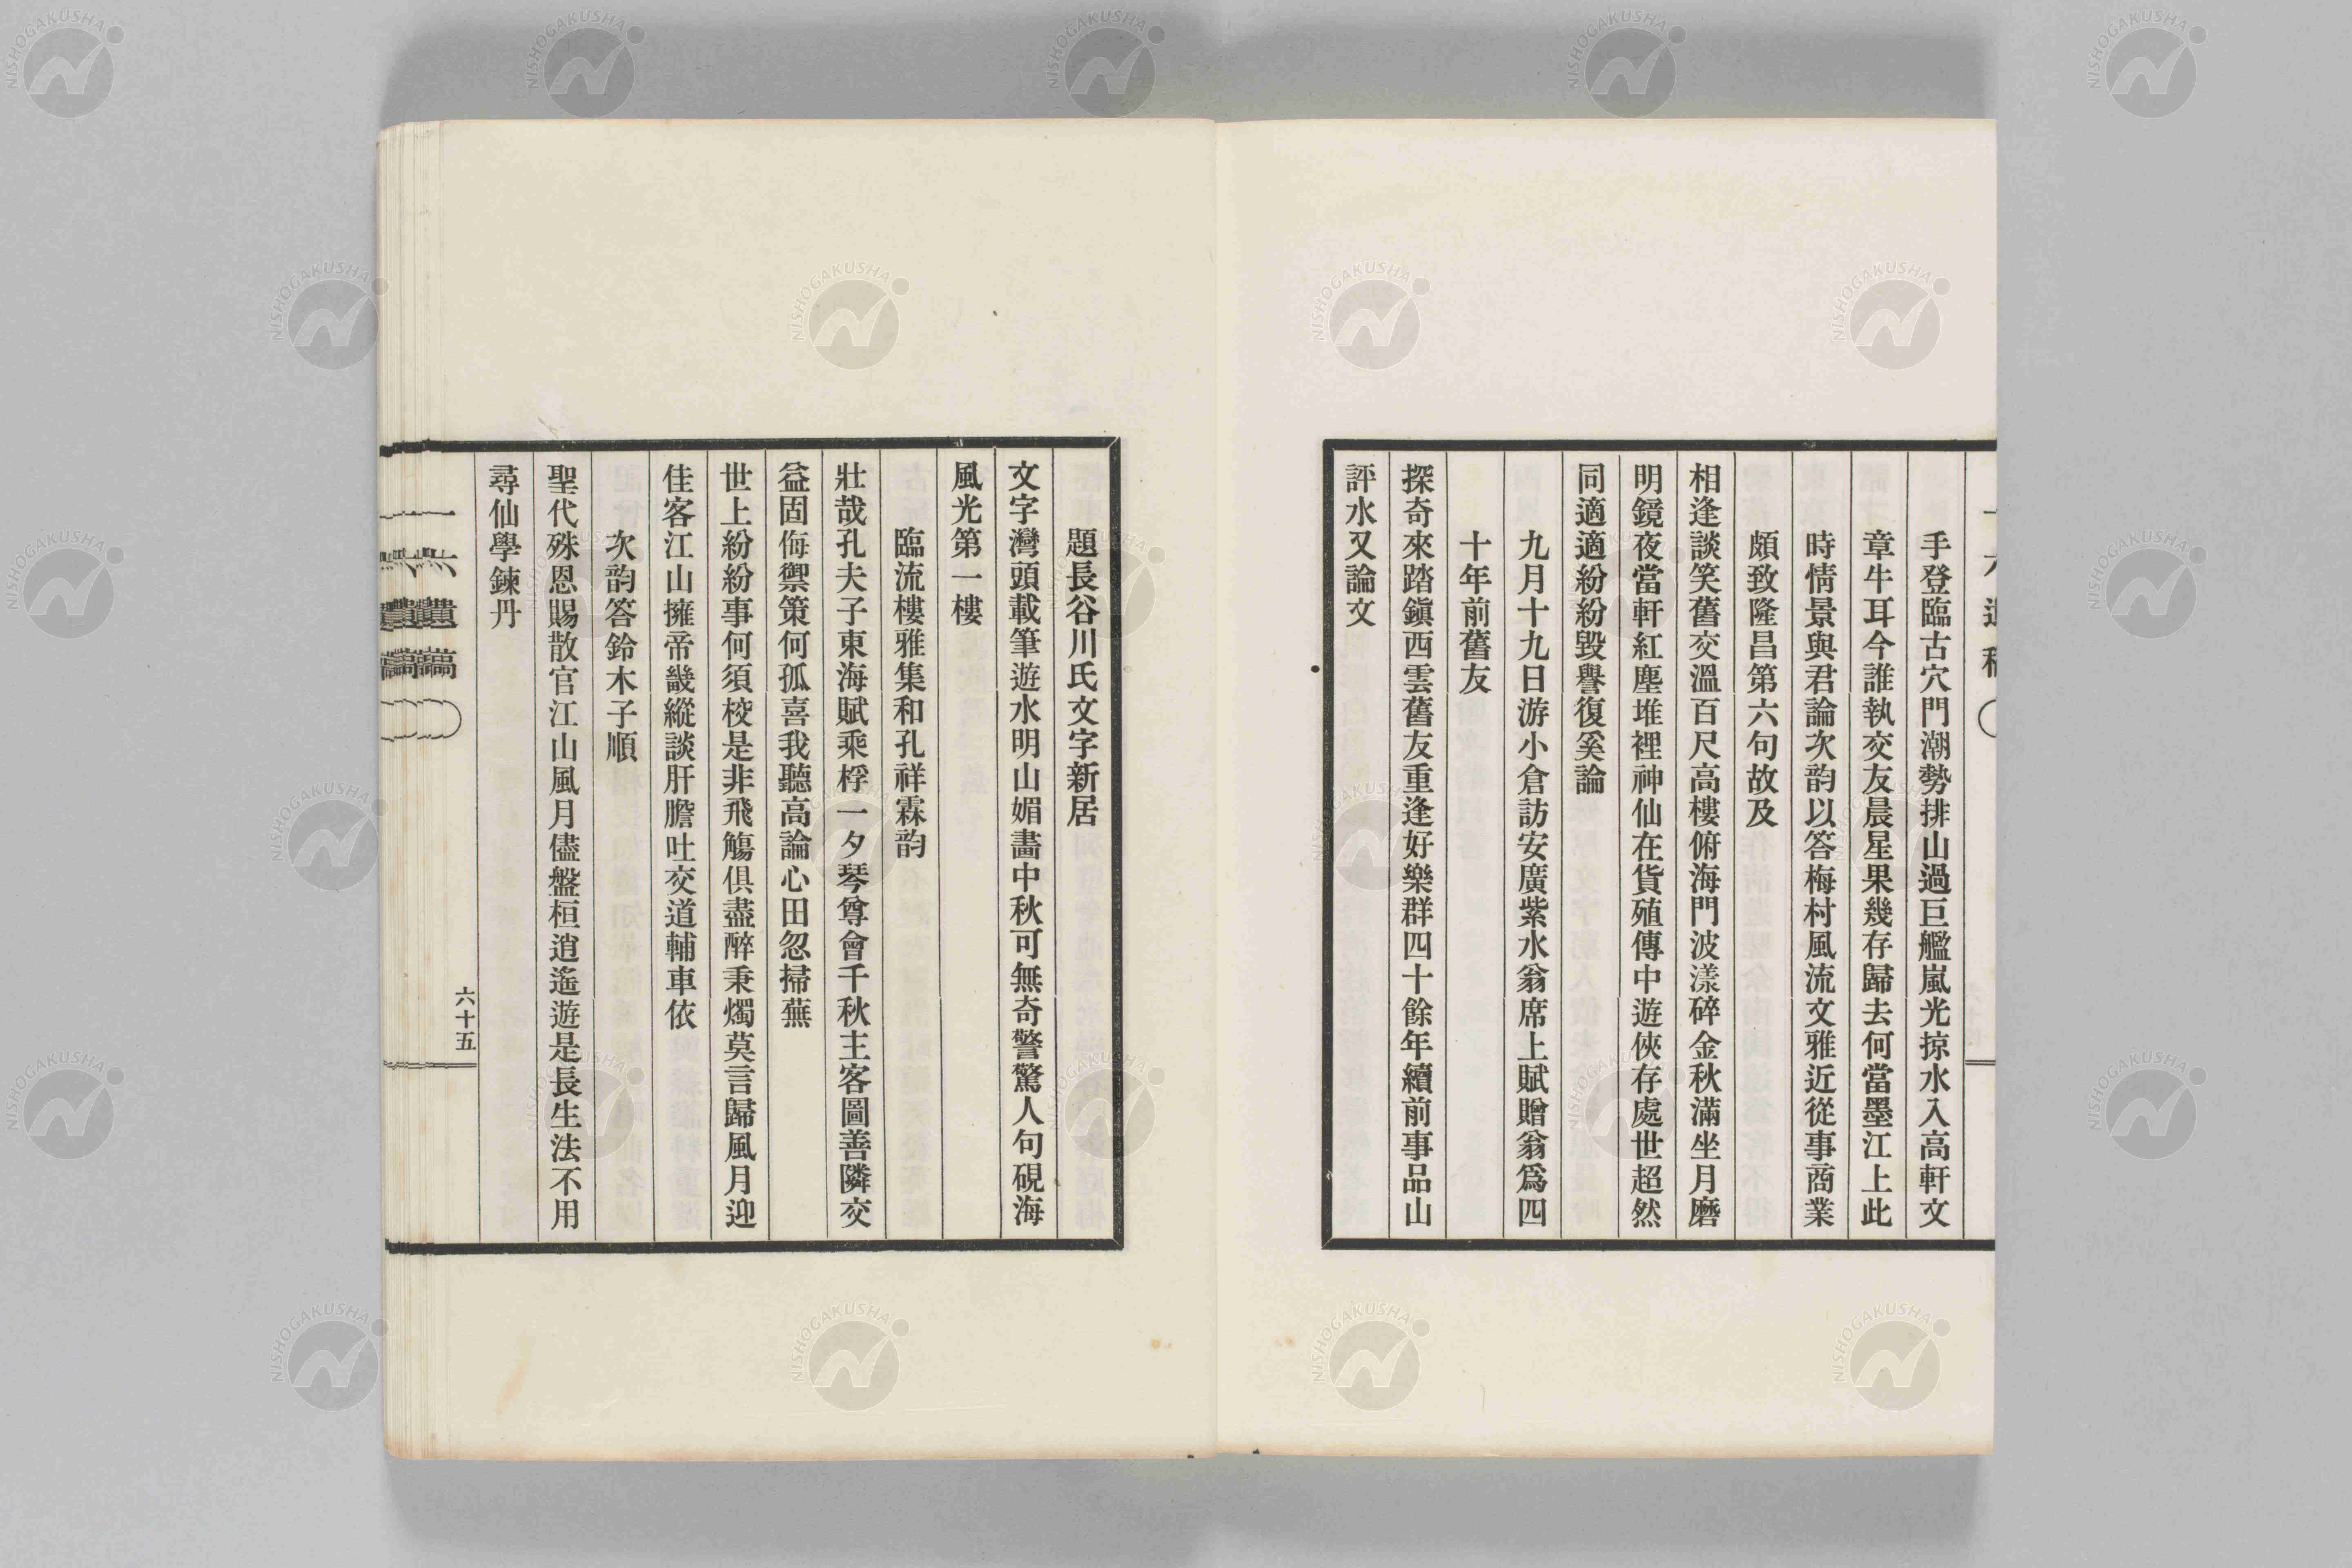 手登臨古穴門潮勢排山過巨艦嵐光掠水入高軒文
章牛耳今誰執交友晨星果幾存歸去何當墨江上此
時情景與君論次韵以答梅村風流文雅近從事商業
頗致隆昌第六句故及
相逢談笑舊交溫百尺高樓俯海門波漾碎金秋滿坐月磨
明鏡夜當軒紅塵堆裡神仙在貨殖傳中遊俠存處世超然
同適適紛紛毀譽復奚論
九月十九日游小倉訪安廣紫水翁席上賦贈翁爲四
十年前舊友
探奇來踏鎭西雲舊友重逢好樂群四十餘年續前事品山
評水又論文
題長谷川氏文字新居
文字灣頭載筆遊水明山媚畵中秋可無奇警驚人句硯海
風光第一樓
臨流樓雅集和孔祥霖韵
壯哉孔夫子東海賦乘桴一夕琴尊會千秋主客圖善隣交
益固侮禦策何孤喜我聽高論心田忽掃蕪
世上紛紛事何須校是非飛觴俱盡醉秉燭莫言歸風月迎
佳客江山擁帝畿縱談肝膽吐交道輔車依
次韵答鈴木子順
聖代殊恩賜散官江山風月儘盤桓逍遙遊是長生法不用
尋仙學鍊丹
一六遺稿
六十五
NISHOGAKUSHA